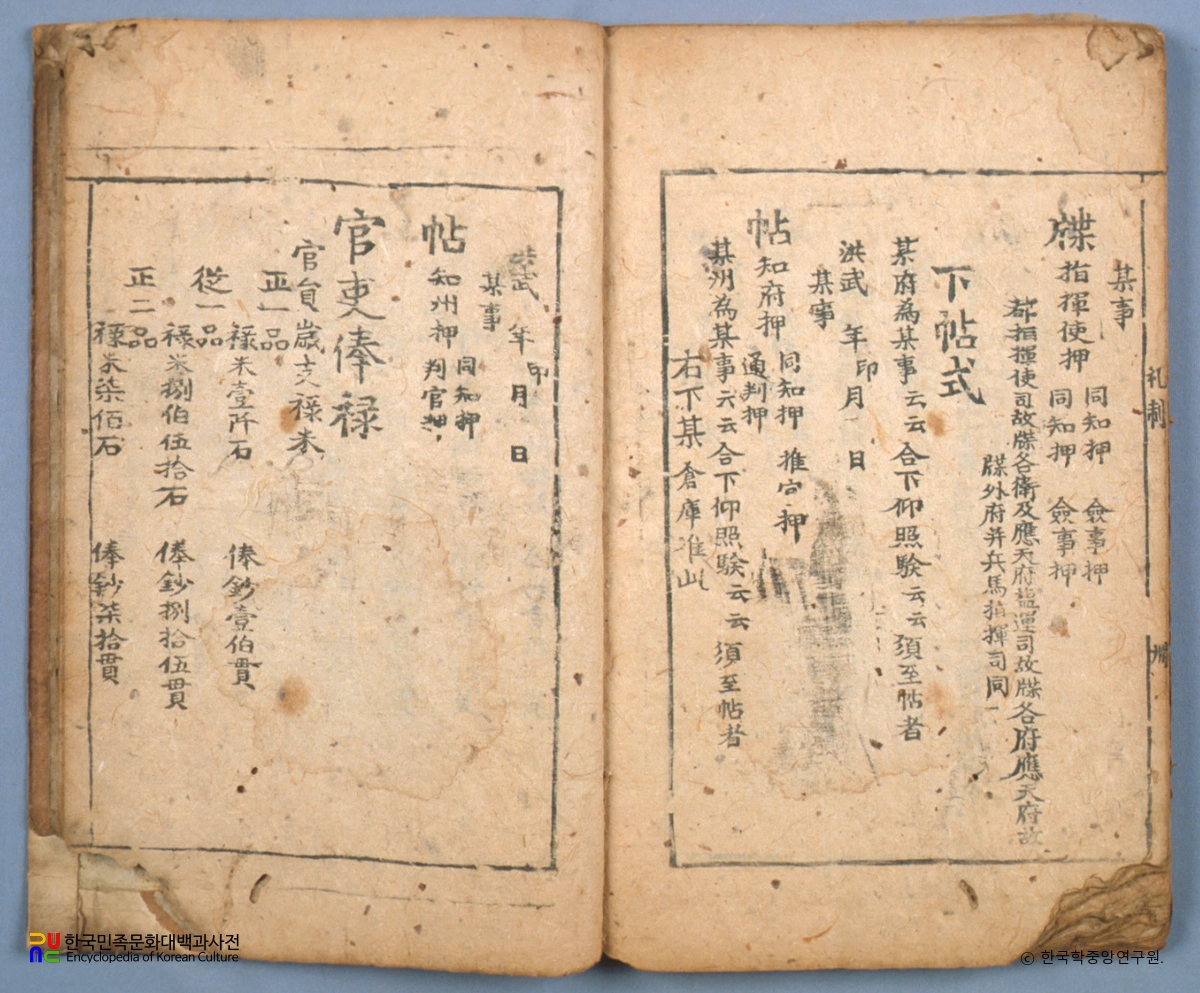 某事
牒指揮使押 同知押 僉事押
同知押 僉事押
都指揮使司故牒各衛及應天府鹽運司故牒各府應天府故
牒外府并兵馬指揮司同
下帖式
某府為某事云云合下仰照驗云云須至帖者
洪武 年 印 月 日
某事
帖 知府押 同知押 推官押
通判押
某州為某事云云合下仰照驗云云須至帖者
右下某倉庫准此
礼制
洪武 年 印 月 日
某事
帖 知州押 同知押
判官押
官吏俸禄
官員歲支禄米
正一品 禄米壹阡石 俸鈔壹伯貫
從一品 禄米捌伯伍拾石 俸鈔捌拾伍貫
正二品 禄米柒佰石 俸鈔柒拾貫
한국민족문화대백과사전
Encyclopedia of Korean Culture
© 한국학중앙연구원.